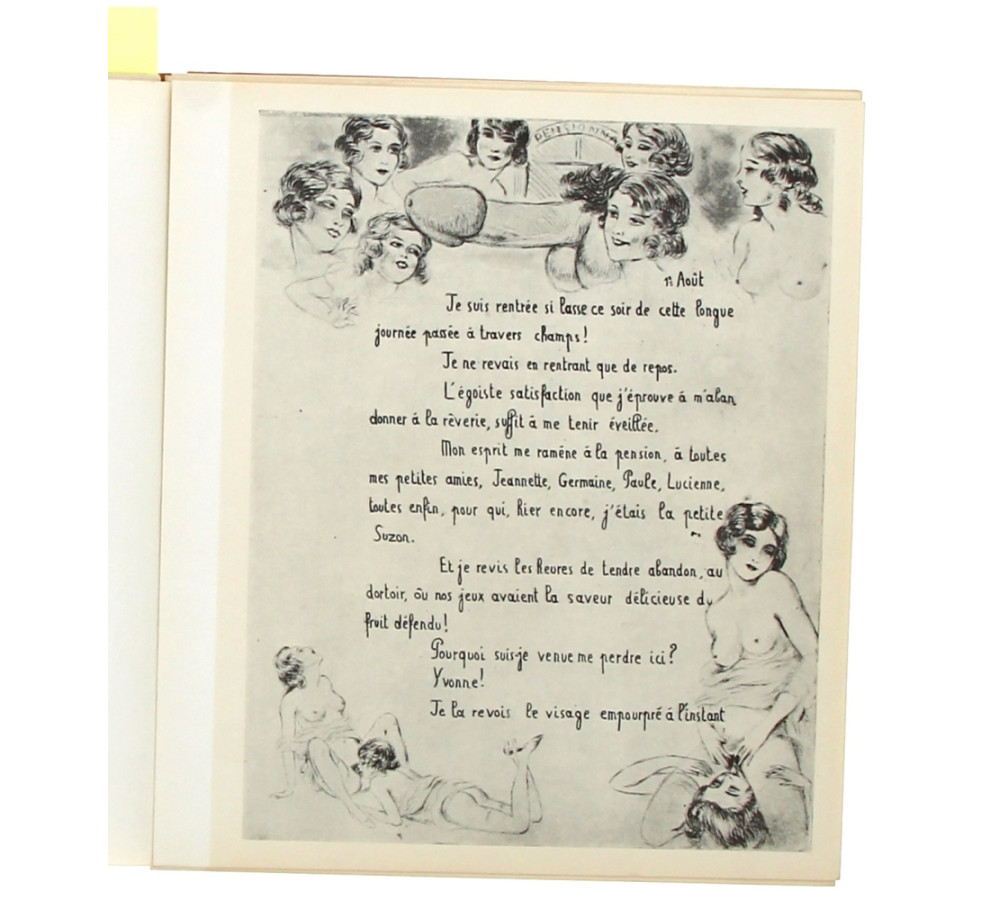 PENSIONNA
1r. Août
Je suis rentrée si lasse ce soir de cette longue
journée passée à travers champs!
Je ne revais en rentrant que de repos.
L'égoïste satisfaction que j'éprouve à m'aban
donner à la rêverie, suffit à me tenir éveillée.
Mon esprit me ramène à la pension, à toutes
mes petites amies, Jeannette, Germaine, Paule, Lucienne,
toutes enfin, pour qui, hier encore, j'étais la petite
Suzon.
Et je revis les heures de tendre abandon, au
dortoir, où nos jeux avaient la saveur délicieuse du
fruit défendu!
Pourquoi suis-je venue me perdre ici?
Yvonne!
Je la revois le visage empourpré à l'instant